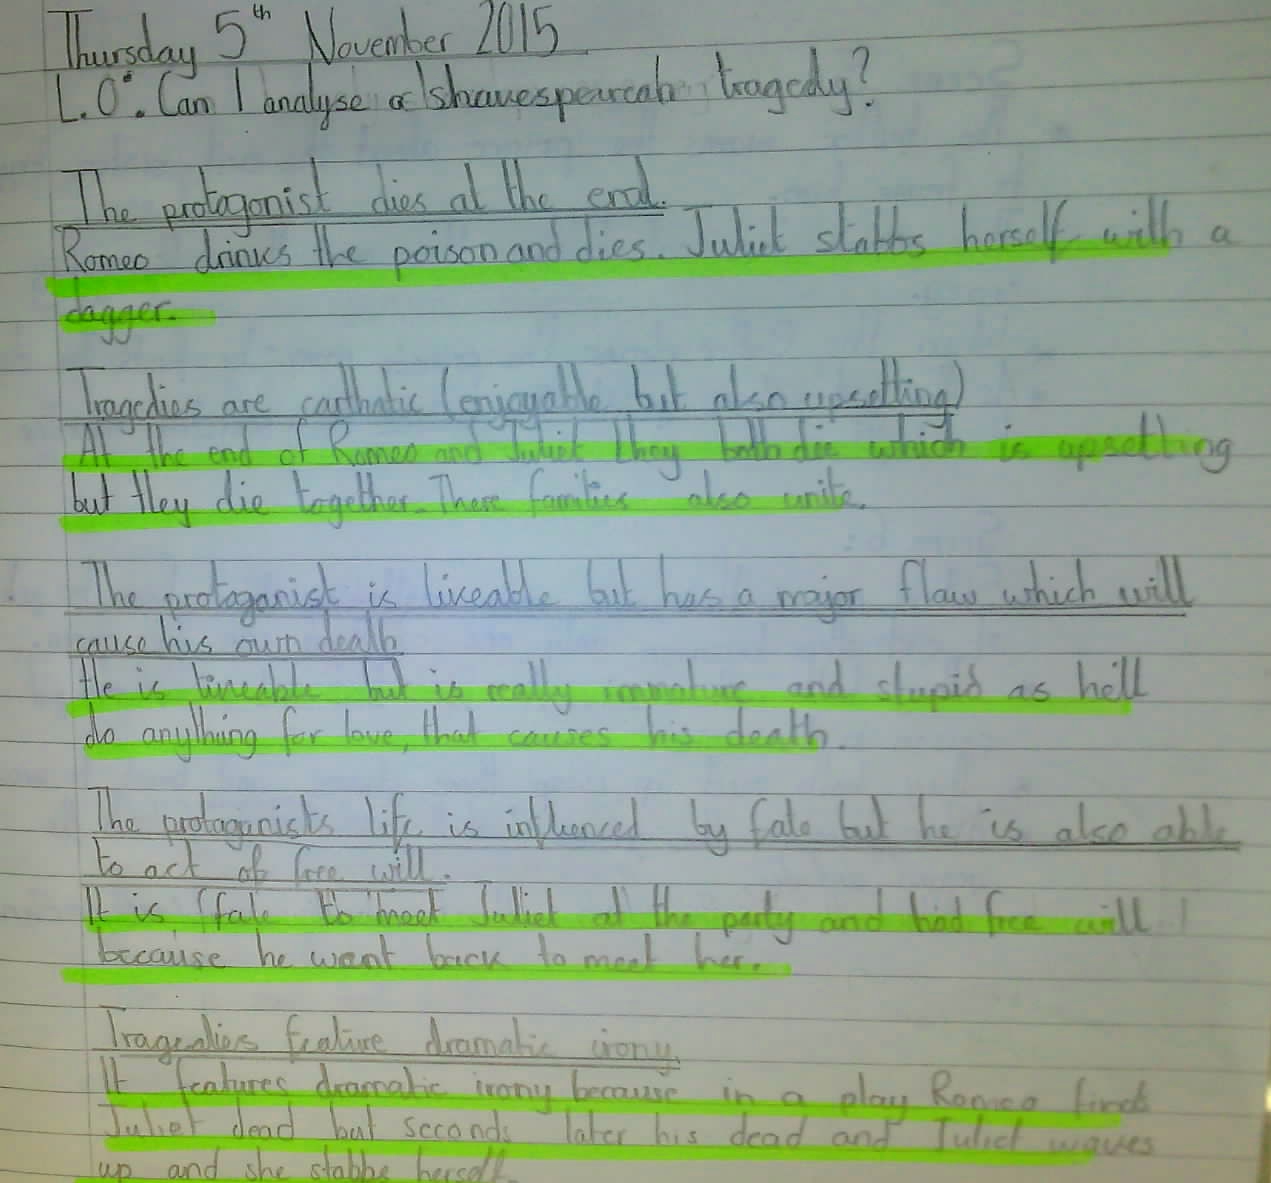 Thursday 5th November 2015
L.O: Can I analyse a shakespearean tragedy?
The protagonist dies at the end.
Romeo drinks the poison and dies. Juliet stabbs herself with a
dagger.
Tragedies are carthatic (enjoyable but also upsetting)
At the end of Romeo and Juliet they both die which is upsetting
but they die together. There families also unite.
The protaganist is likeable but has a major flaw which will
cause his own death
He is likeable but is really immature and stupid as hell
do anything for love, that causes his death.
The protaganists life is influenced by fate but he is also able
to act of free will.
It is fate to meet Juliet at the party and had free will
because he want back to meet her.
Tragedies feature dramatic irony.
It features dramatic irony because in a play Romeo finds
Juliet dead but seconds later his dead and Juliet waves
up and she stabbs herself.